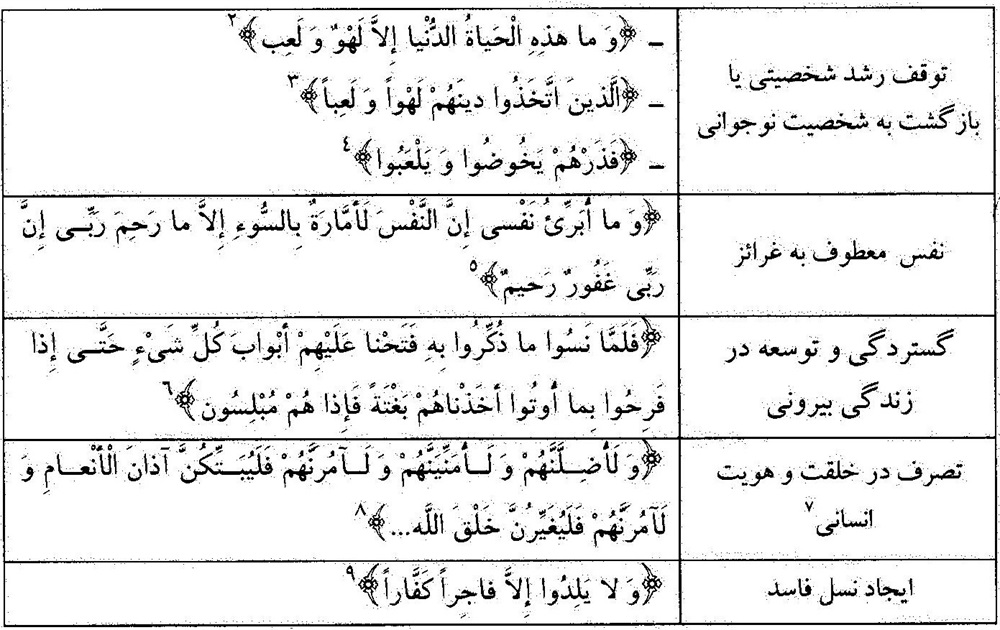 توقف رشد شخصیتی یا
بازگشت به شخصیت نوجوانی
ـ ﴿وَ ما هذِهِ الْحَياةُ الدُّنْيا إِلاَّ لَهْوٌ وَ لَعِب﴾٢
ـ ﴿الَّذينَ اتَّخَذُوا دينَهُمْ لَهْواً وَ لَعِباً﴾٣
ـ ﴿فَذَرْهُمْ يَخُوضُوا وَ يَلْعَبُوا﴾٤
نفس معطوف به غرائز
﴿وَ ما أُبَرِّئُ نَفْسى إِنَّ النَّفْسَ لَأَمَّارَةٌ بِالسُّوءِ إِلاَّ ما رَحِمَ رَبِّـى إِنَّ
رَبِّى غَفُورٌ رَحيمٌ﴾٥
گستردگی و توسعه در
زندگی بیرونی
﴿فَلَمَّا نَسُوا ما ذُكِّرُوا بِهِ فَتَحْنا عَلَيْهِمْ أَبْوابَ كُلِّ شَىْءٍ حَتَّـى إِذا
فَرِحُوا بِما أُوتُوا أَخَذْناهُمْ بَغْتَةً فَإِذا هُمْ مُبْلِسُون﴾٦
تصرف در خلقت و هویت
انسانی٧
﴿وَ لَأُضِـلَّنَّهُمْ وَ لَـأُمَنِّيَنَّهُمْ وَ لَـآمُرَنَّهُمْ فَلَيُبَـتِّكُنَّ آذانَ الْأَنْعـامِ وَ
لَآمُرَنَّهُمْ فَلَيُغَيِّرُنَّ خَلْقَ اللَّه...﴾٨
ایجاد نسل فاسد
﴿وَ لا يَلِدُوا إِلاَّ فاجِراً كَفَّاراً﴾٩